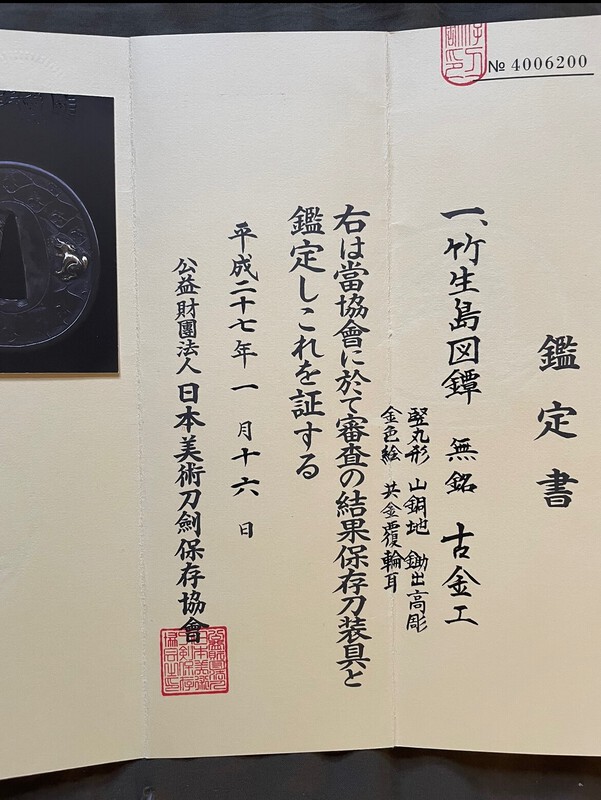 № 4006200
鑑定書
一、竹生島図鐔 無銘 古金工
竪丸形 山銅地 鋤出高彫
金色絵 共金覆輪耳
右は當協會に於て審査の結果保存刀装具と
鑑定しこれを証する
平成二十七年一月十六日
公益財團法人 日本美術刀劍保存協會